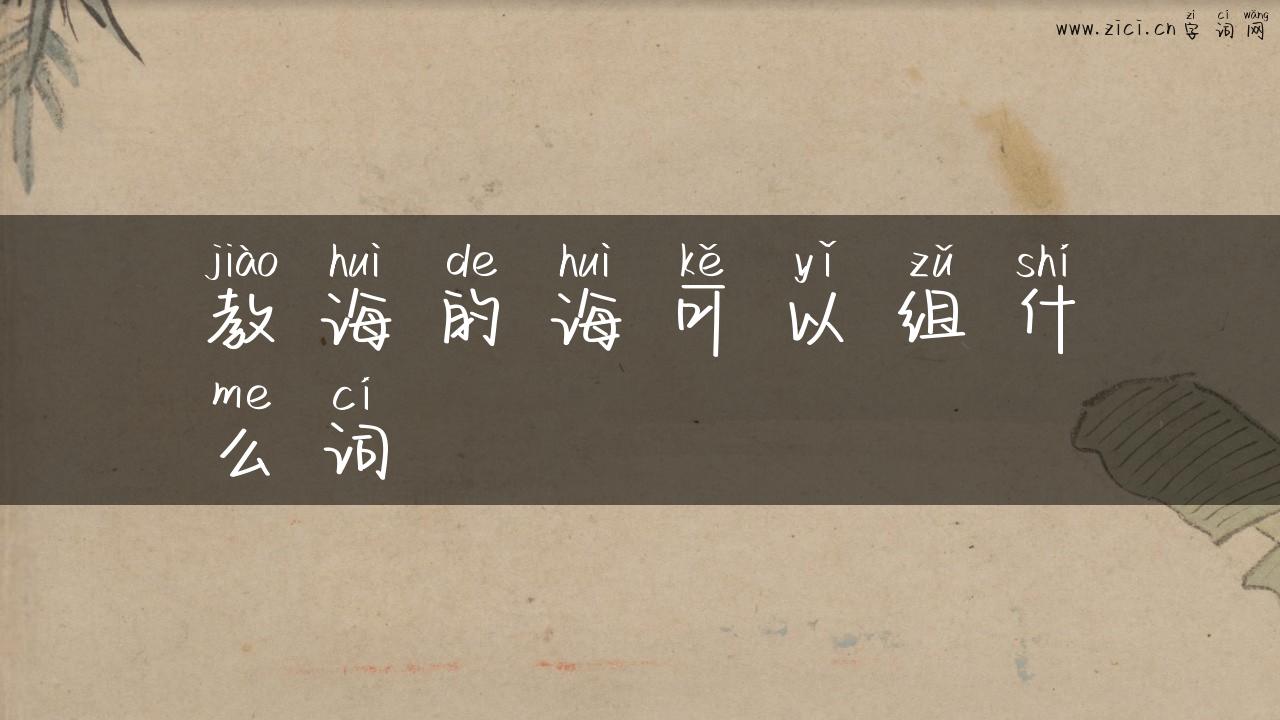 zì cí wǎng
www.zici.cn 字词网
jiào huì de huì kě yǐ zǔ shí
教诲的诲可以组什
me cí
么词